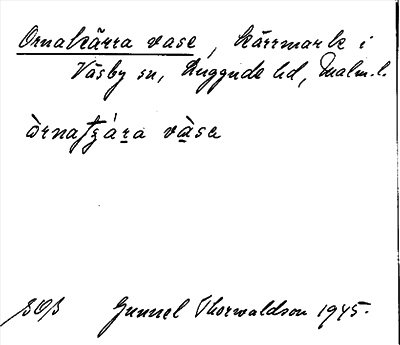 Ornakärra vase, Kärrmark i
Väsby sn, Luggude hd, Malm. l.
òrnaꞎára vàsa
Gunnel Thorwaldson 1945.